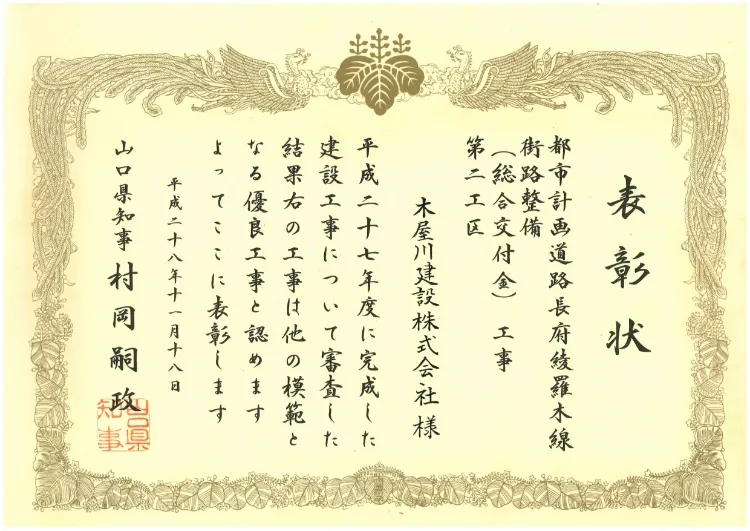 表彰状
都市計画道路長府綾羅木線
街路整備
（総合交付金）工事
第二工区
木屋川建設株式会社様
平成二十七年度に完成した
建設工事について審査した
結果右の工事は他の模範と
なる優良工事と認めます
よってここに表彰します
平成二十八年十一月十八日
山口県知事村岡嗣政
山口県
知事